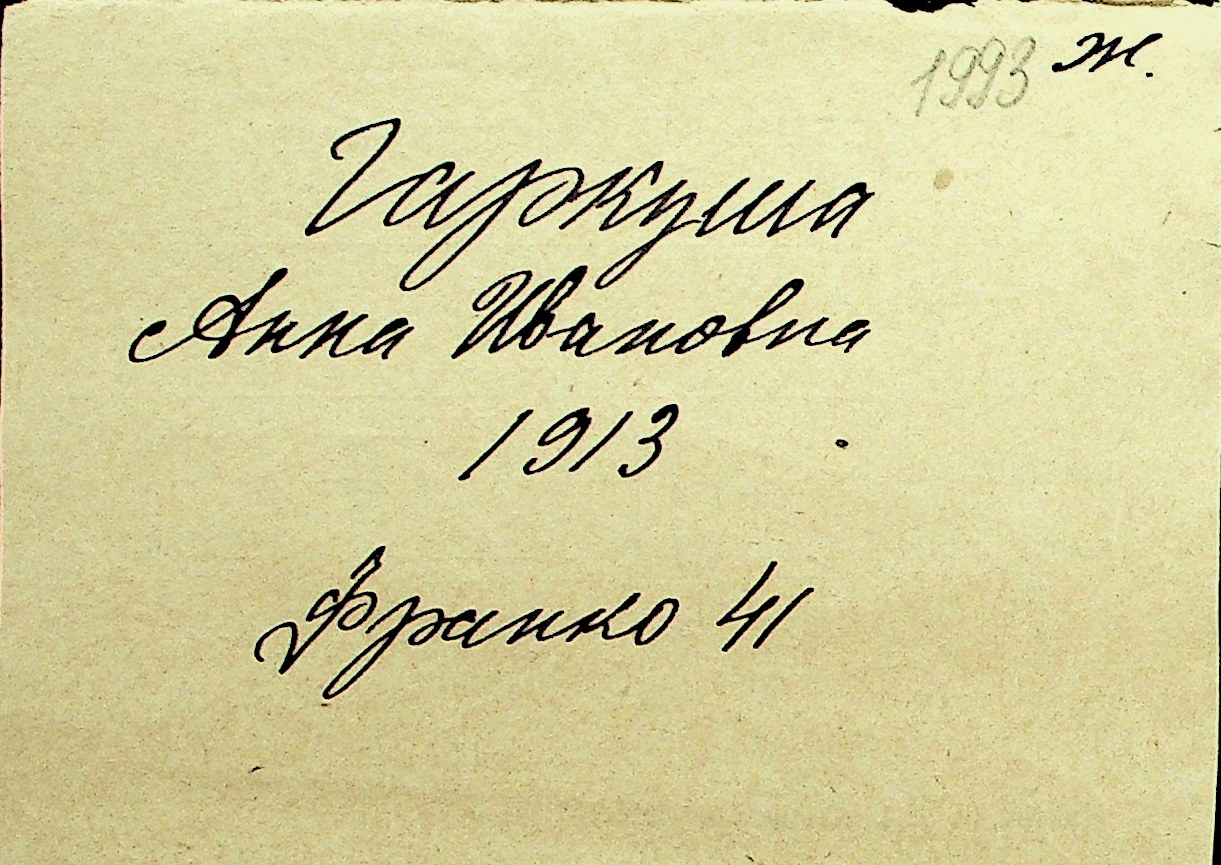 1993 ж.
Гаркуша
Анна Ивановна
1913
Франко 41